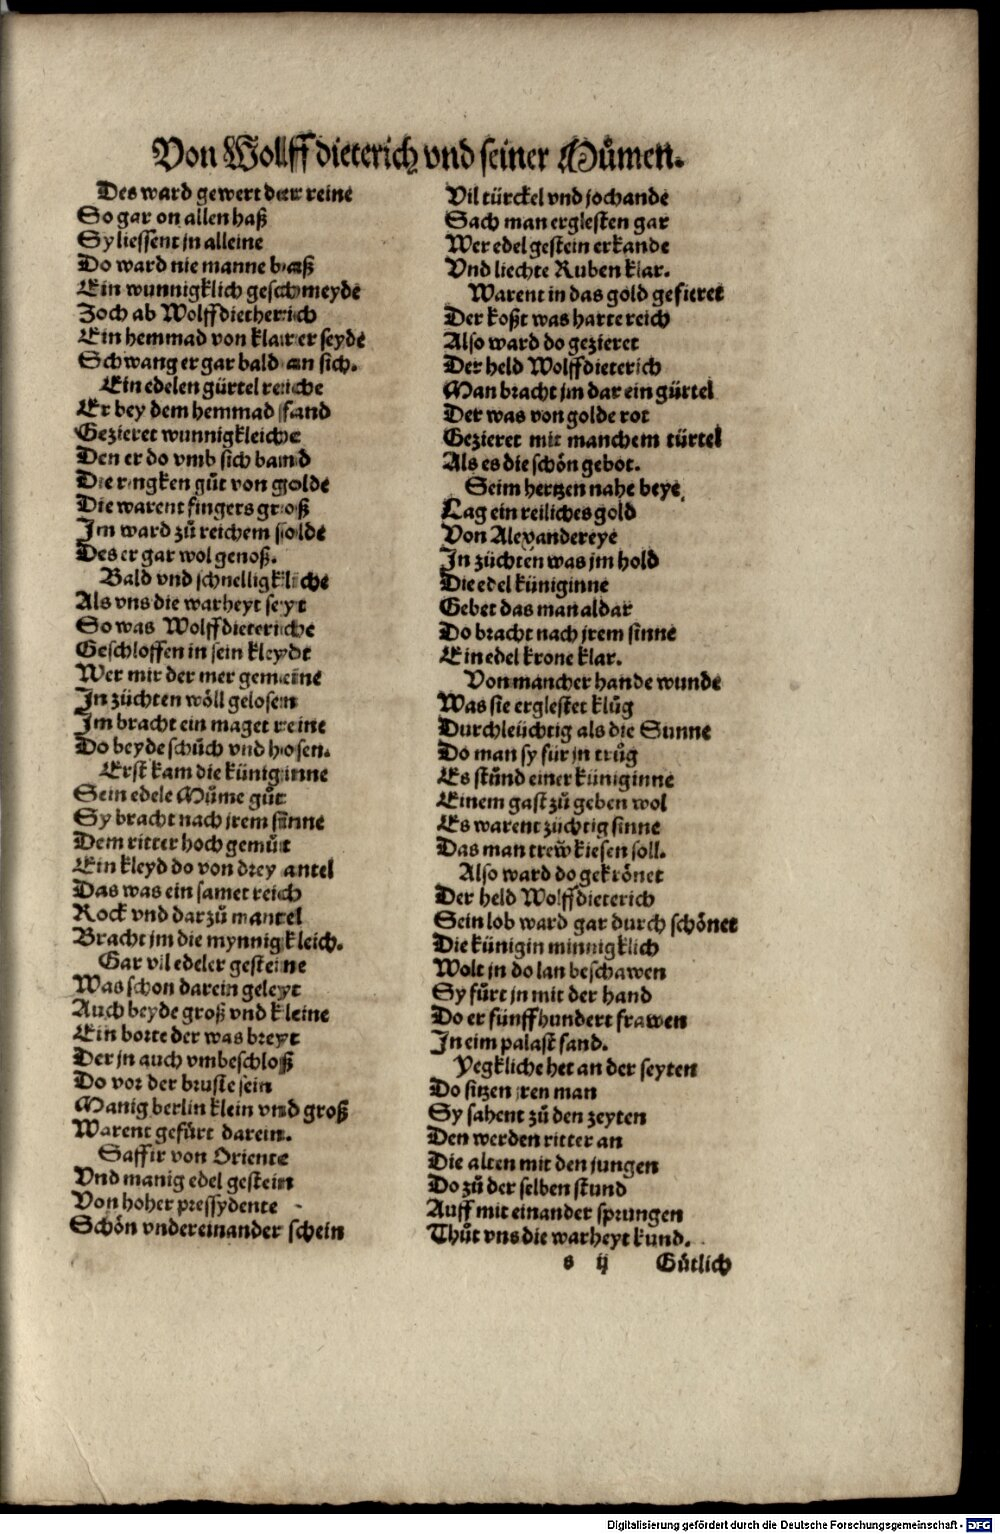 Von Wolffdieterich vnd seiner Můmen.
Des ward gewert der reine
So gar on allen haß
Sy liessent jn alleine
Do ward nie manne baß
Ein wunnigklich geschmeyde
Zoch ab Wolffdietherich
Ein hemmad von klarer seyde
Schwang er gar bald an sich.
Ein edelen gürtel reiche
Er bey dem hemmad fand
Gezieret wunnigkleiche
Den er do vmb sich band
Die ringken gůt von golde
Die warent fingers groß
Im ward zů reichem solde
Des er gar wol genoß.
Bald vnd schnelligkliche
Als vns die warheyt seyt
So was Wolffdieteriche
Geschloffen in sein kleydt
Wer mir der mer gemeine
In züchten wöll gelosen
Im bracht ein maget reine
Do beyde schůch vnd hosen.
Erst kam die küniginne
Sein edele Můme gůt
Sy bracht nach jrem sinne
Dem ritter hoch gemůt
Ein kleyd do von drey antel
Das was ein samet reich
Rock vnd darzů mantel
Bracht jm die mynnigkleich.
Gar vil edeler gesteine
Was schon darein geleyt
Auch beyde groß vnd kleine
Ein borte der was breyt
Der jn auch vmbeschloß
Do vor der bruste sein
Manig berlin klein vnd groß
Warent gefürt darein.
Saffir von Oriente
Vnd manig edel gestein
Von hoher pressydente
Schön vndereinander schein
Vil türckel vnd jochande
Sach man erglesten gar
Wer edel gestein erkande
Vnd liechte Ruben klar.
Warent in das gold gefieret
Der koßt was harte reich
Also ward do gezieret
Der held Wolffdieterich
Man bracht jm dar ein gürtel
Der was von golde rot
Gezieret mit manchem türtel
Als es die schön gebot.
Seim hertzen nahe beye
Lag ein reiliches gold
Von Alexandereye
In züchten was jm hold
Die edel küniginne
Gebet das man aldar
Do bracht nach jrem sinne
Ein edel krone klar.
Von mancher hande wunde
Was sie erglestet klůg
Durchleüchtig als die Sunne
Do man sy für jn trůg
Es stůnd einer küniginne
Einem gast zů geben wol
Es warent züchtig sinne
Das man trew kiesen soll.
Also ward do gekrönet
Der held Wolffdieterich
Sein lob ward gar durch schönet
Die künigin minnigklich
Wolt jn do lan beschawen
Sy fůrt jn mit der hand
Do er fünffhundert frawen
In eim palast fand.
Yegkliche het an der seyten
Do sitzen jren man
Sy sahent zů den zeyten
Den werden ritter an
Die alten mit den jungen
Do zů der selben stund
Auff mit einander sprungen
Thůt vns die warheyt kund.
s ij Gůtlich
Digitalisierung gefördert durch die Deutsche Forschungsgemeinschaft - DFG